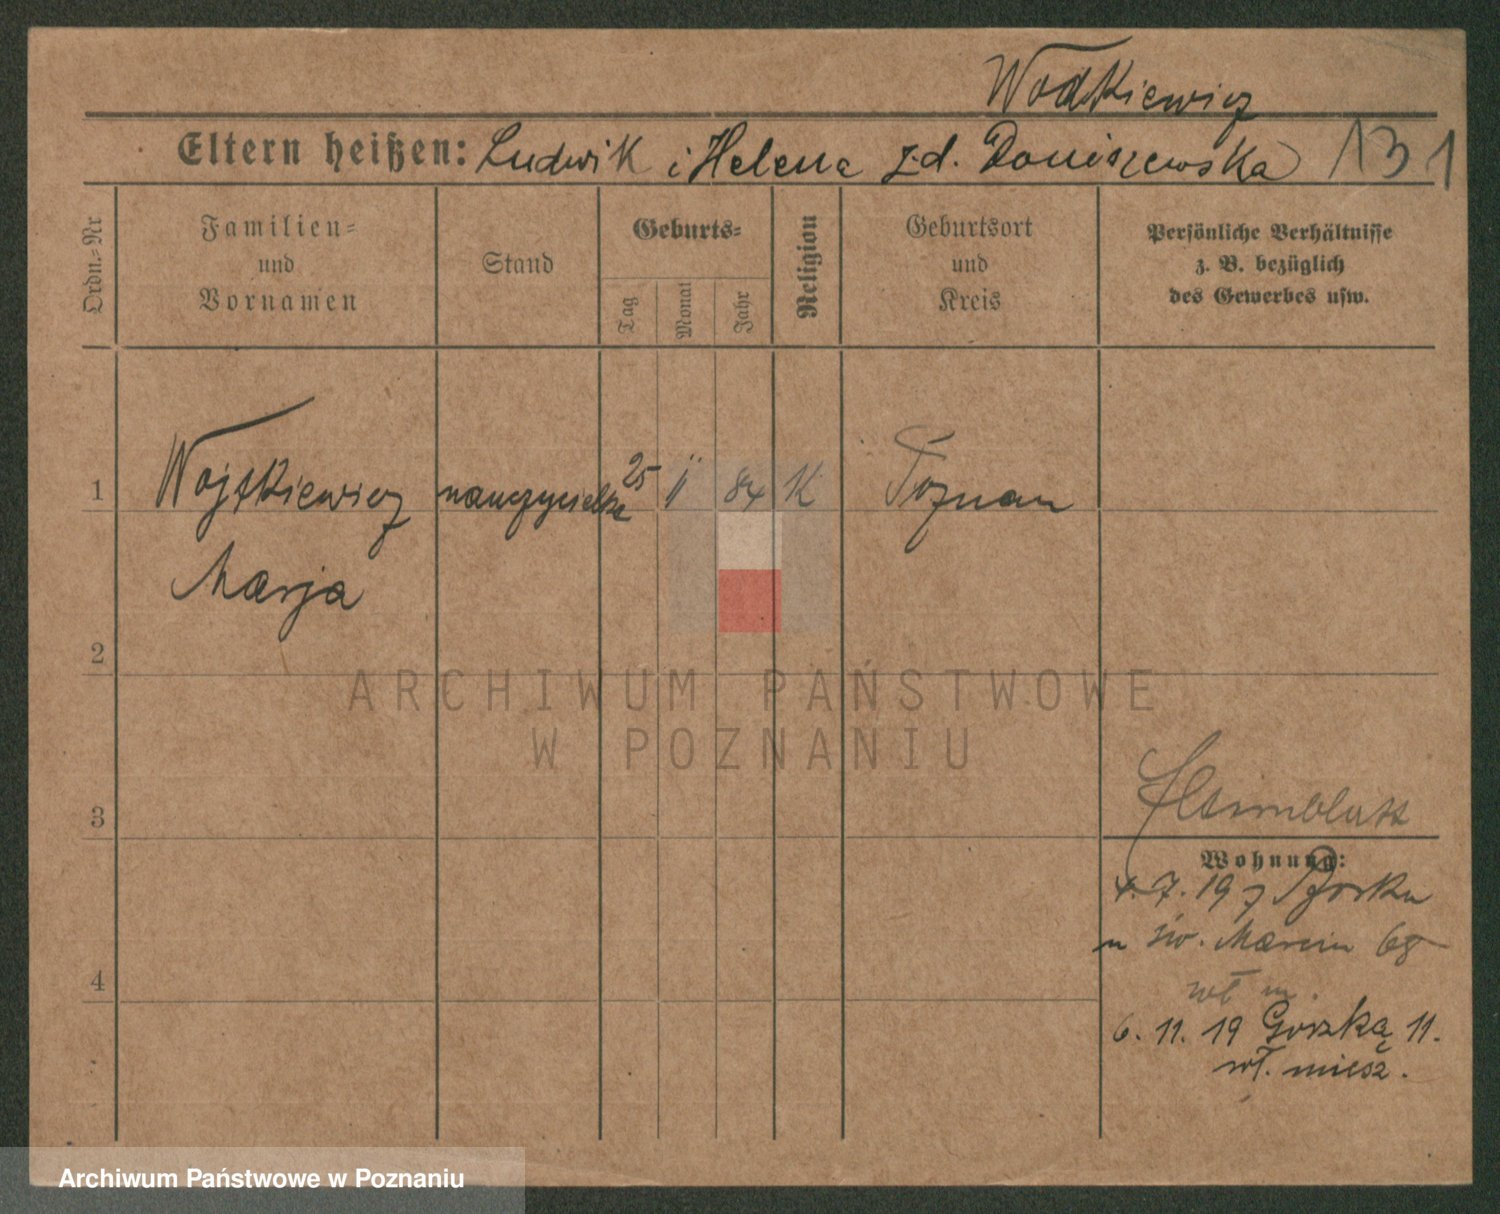 Wodtkiewicz
Eltern heißen: Ludwik i Helena z.d. Doniszewska 131
Ordn.-Nr
Familien-
und
Vornamen
Stand
Geburts-
Tag
Monat
Jahr
Religion
Geburtsort
und
Kreis
Persönliche Verhältnisse
z. B. bezüglich
des Gewerbes usw.
1 Wojtkiewicz nauczycielka 25 ii 84 K Poznan
Marja
2
ARCHIWUM PAŃSTWOWE
W POZNANIU
3
Wohnung:
4.7.19 z Borku
u św. Marcin 68
wł m.
4
6.11.19 Gorzka 11.
wł. miesz.
Archiwum Państwowe w Poznaniu